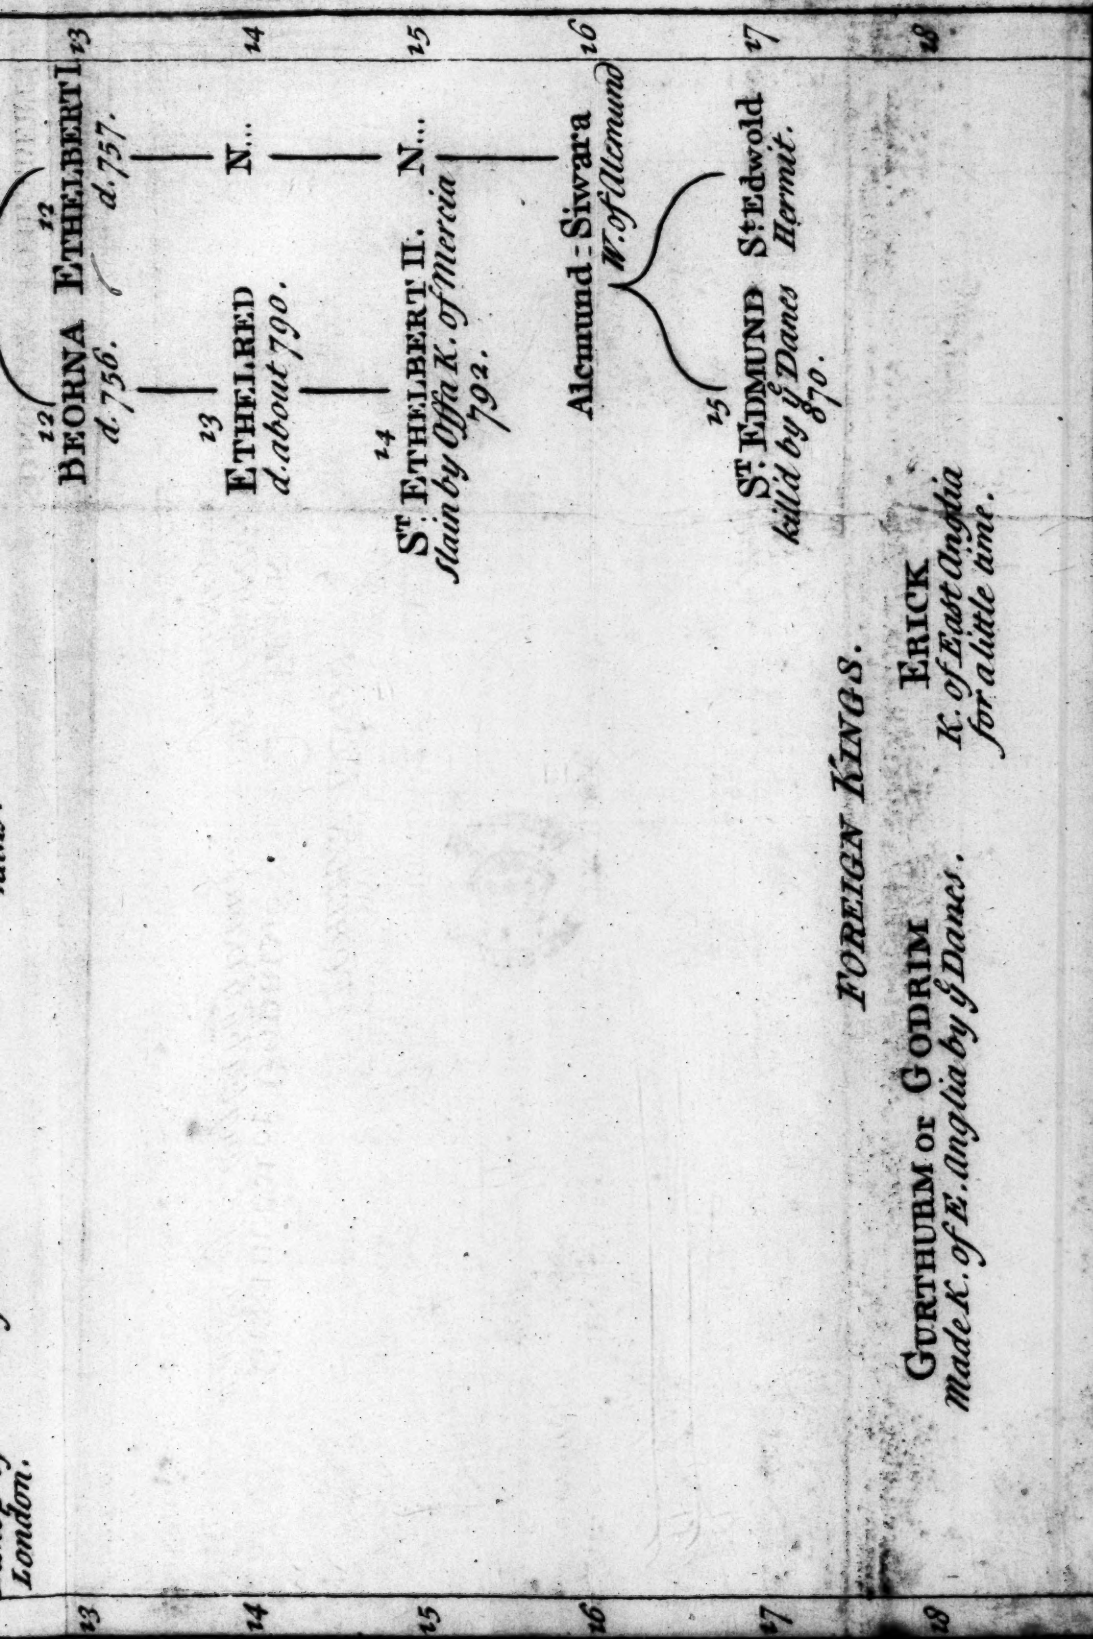 London.
13
12
BEORNA
d. 756.
12
ETHELBERT I
d. 757.
13
14
13
ETHELRED
d. about 790.
N...
14
15
14
ST. ETHELBERT II.
slain by Offa K. of Mercia
792.
N...
15
16
Alcmund = Siwara
W. of Alcmund
16
17
15
ST. EDMUND
kill'd by ye Danes
870.
St. Edwold
Hermit.
17
FOREIGN KINGS.
18
GURTHURM or GODRIM
Made K. of E. Anglia by ye Danes.
ERICK
K. of East Anglia
for a little time.
18